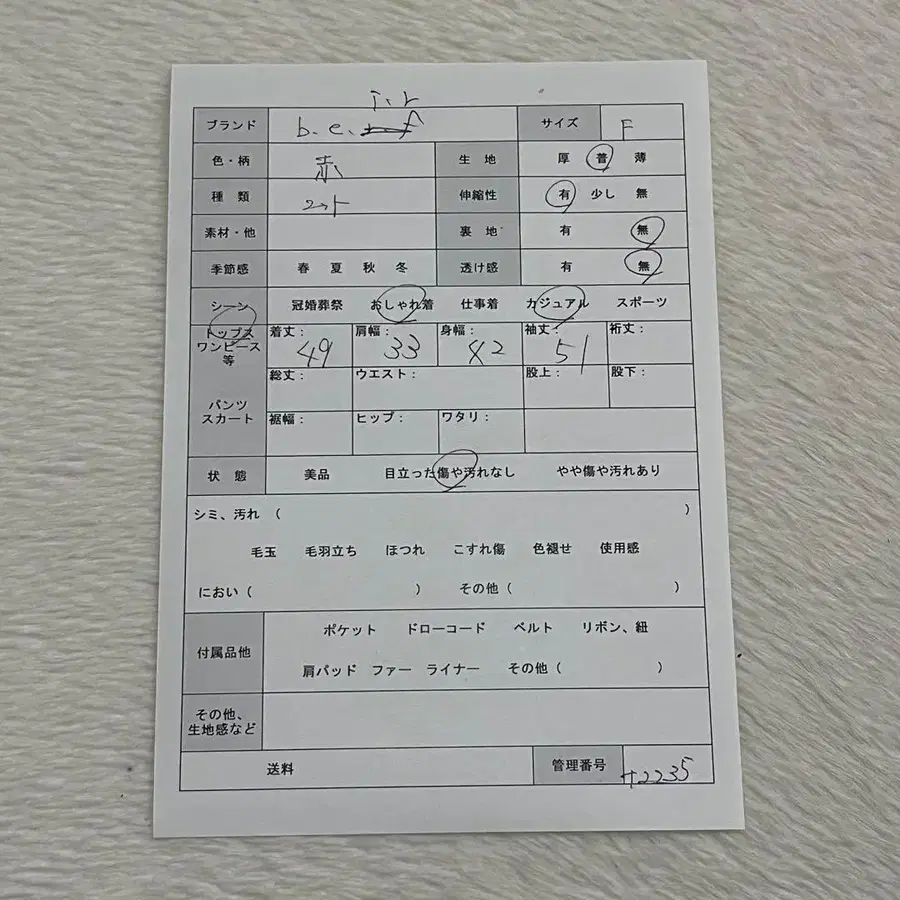 i.r
ブランド b.e. サイズ F
色・柄 赤 生地 厚 普 薄
種類 ニット 伸縮性 有 少し 無
素材・他 裏地 有 無
季節感 春 夏 秋 冬 透け感 有 無
シーン 冠婚葬祭 おしゃれ着 仕事着 カジュアル スポーツ
トップス
ワンピース
等
着丈： 49 肩幅： 33 身幅： 42 袖丈： 51 裄丈：
総丈： ウエスト： 股上： 股下：
パンツ
スカート
裾幅： ヒップ： ワタリ：
状態 美品 目立った傷や汚れなし やや傷や汚れあり
シミ、汚れ （ ）
毛玉 毛羽立ち ほつれ こすれ傷 色褪せ 使用感
におい（ ） その他（ ）
付属品他
ポケット ドローコード ベルト リボン、紐
肩パッド ファー ライナー その他（ ）
その他、
生地感など
送料 管理番号 2235